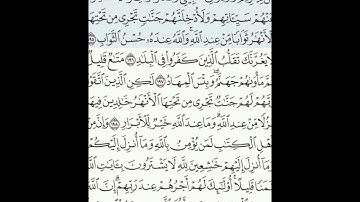 عَنْهُمْ سَيِّـَٔاتِهِمْ وَلَأُدْخِلَنَّهُمْ جَنَّٰتٍ تَجْرِى مِن تَحْتِهَا
ٱلْأَنْهَٰرُ ثَوَابًا مِّنْ عِندِ ٱللَّهِ وَٱللَّهُ عِندَهُۥ حُسْنُ ٱلثَّوَابِ ١٩٥
يَغُرَّنَّكَ تَقَلُّبُ ٱلَّذِينَ كَفَرُوا۟ فِى ٱلْبِلَٰدِ ١٩٦ مَتَٰعٌ قَلِيلٌ
مَّ مَأْوَىٰهُمْ جَهَنَّمُ وَبِئْسَ ٱلْمِهَادُ ١٩٧ لَٰكِنِ ٱلَّذِينَ ٱتَّقَوْا۟
بَّهُمْ لَهُمْ جَنَّٰتٌ تَجْرِى مِن تَحْتِهَا ٱلْأَنْهَٰرُ خَٰلِدِينَ فِيهَا
زُلًا مِّنْ عِندِ ٱللَّهِ وَمَا عِندَ ٱللَّهِ خَيْرٌ لِّلْأَبْرَارِ ١٩٨ وَإِنَّ مِنْ
هْلِ ٱلْكِتَٰبِ لَمَن يُؤْمِنُ بِٱللَّهِ وَمَآ أُنزِلَ إِلَيْكُمْ
مَآ أُنزِلَ إِلَيْهِمْ خَٰشِعِينَ لِلَّهِ لَا يَشْتَرُونَ بِـَٔايَٰتِ ٱللَّهِ
ثَمَنًا قَلِيلًا أُو۟لَٰٓئِكَ لَهُمْ أَجْرُهُمْ عِندَ رَبِّهِمْ إِنَّ ٱللَّهَ